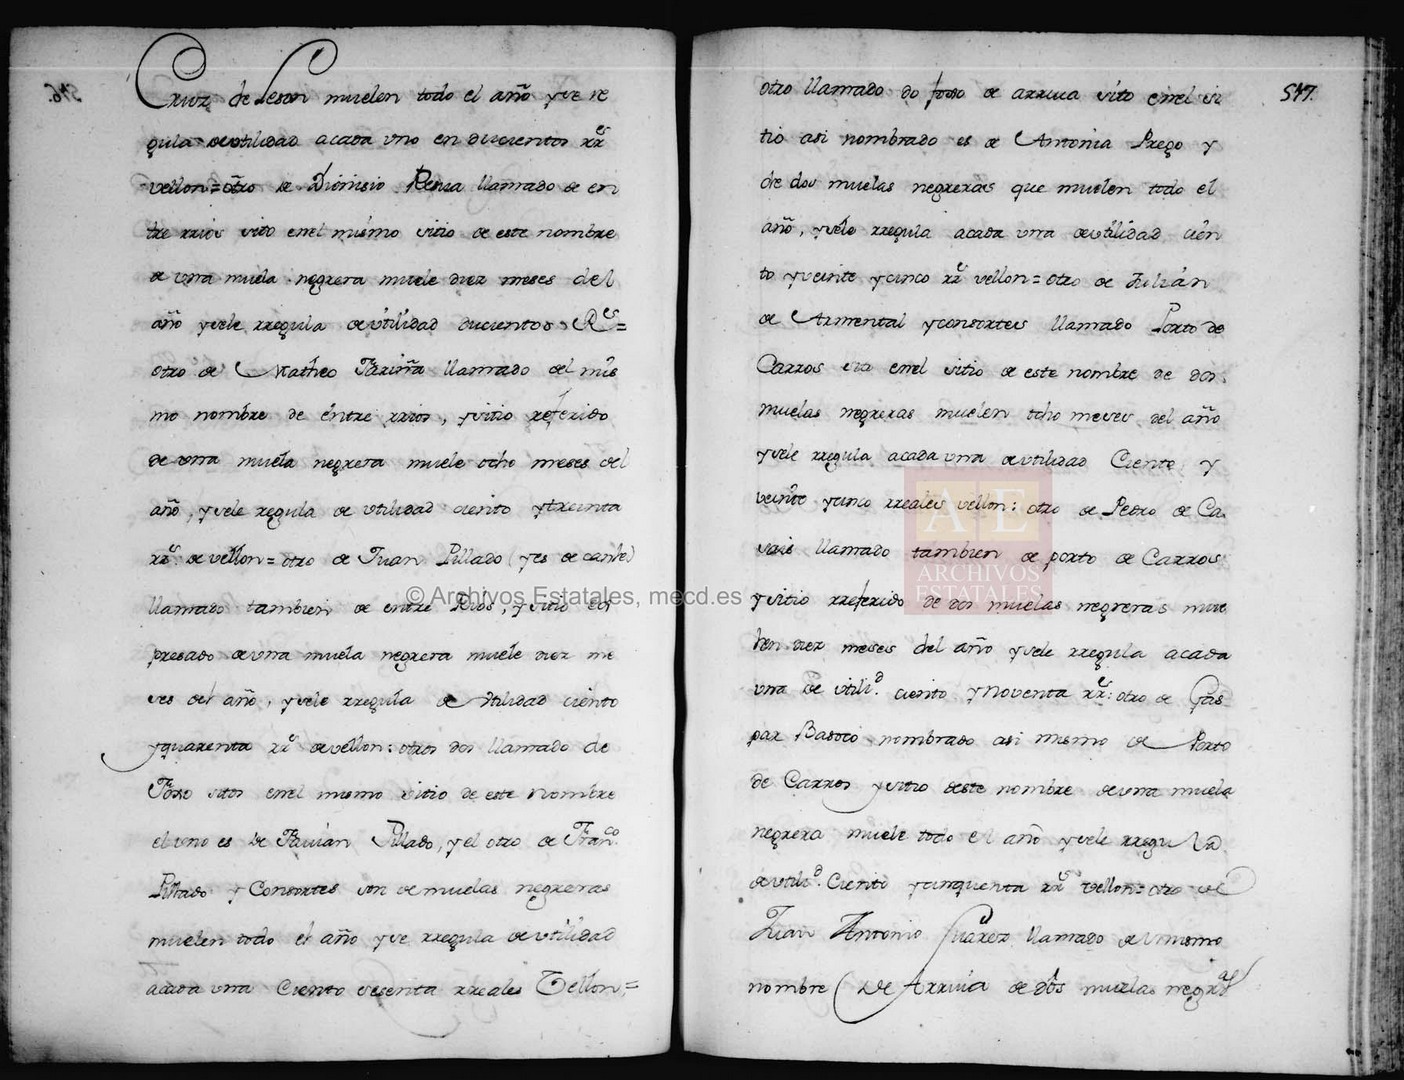 546.
Cruz de Leson muelen todo el año y se re
gula de utilidad acada uno en ducientos rr.es
vellon = otro de Dionisio Resua llamado de en
tre rrios sito enel mismo sitio de este nombre
de una muela negrera muele diez meses del
año y sele rregula de utilidad ducientos R.es =
otro de Matheo Fariña llamado del mis
mo nombre de entre rrios, y sitio referido
de una muela negrera muele ocho meses del
año, y sele regula de utilidad ciento y treinta
rr.s de vellon = otro de Juan Pillado (yes de cante)
llamado tambien de entre Rios, y sitio es
presado de una muela negrera muele diez me
ses del año, y sele rregula de utilidad ciento
y quarenta rr.s de vellon: otros dos llamado de
Foxo sitos enel mismo sitio de este nombre
el uno es de Fauian Pillado, y el otro de Fran.co
Pillado y Consortes son de muelas negreras
muelen todo el año y se rregula de utilidad
acada una Ciento sesenta rreales Vellon =
547.
otro llamado do foxo de arriua sito enel si
tio asi nombrado es de Antonia Prego y
de dos muelas negreras que muelen todo el
año, y sele rregula acada una de utilidad cien
to y veinte y cinco rr.s vellon = otro de Julián
de Armental y consortes llamado Porto de
Carros sita enel sitio de este nombre de dos
muelas negreras muelen ocho meses del año
y sele rregula acada una de utilidad Ciento y
veinte y cinco rreales vellon: otro de Pedro de Ca
sais llamado tambien de porto de Carros
y sitio rreferido de dos muelas negreras mue
len diez meses del año y sele rregula acada
una de utili.d ciento y noventa rr.s: otro de Gas
par Basoco nombrado asi mismo de Porto
de Carros y sitio deste nombre de una muela
negrera muele todo el año y sele rregula
de utili.d Ciento y cinquenta rr.s vellon = otro de
Juan Antonio Suarez llamado del mismo
nombre (De Arriua de dos muelas negr.as
© Archivos Estatales, mecd.es
A E
ARCHIVOS
ESTATALES